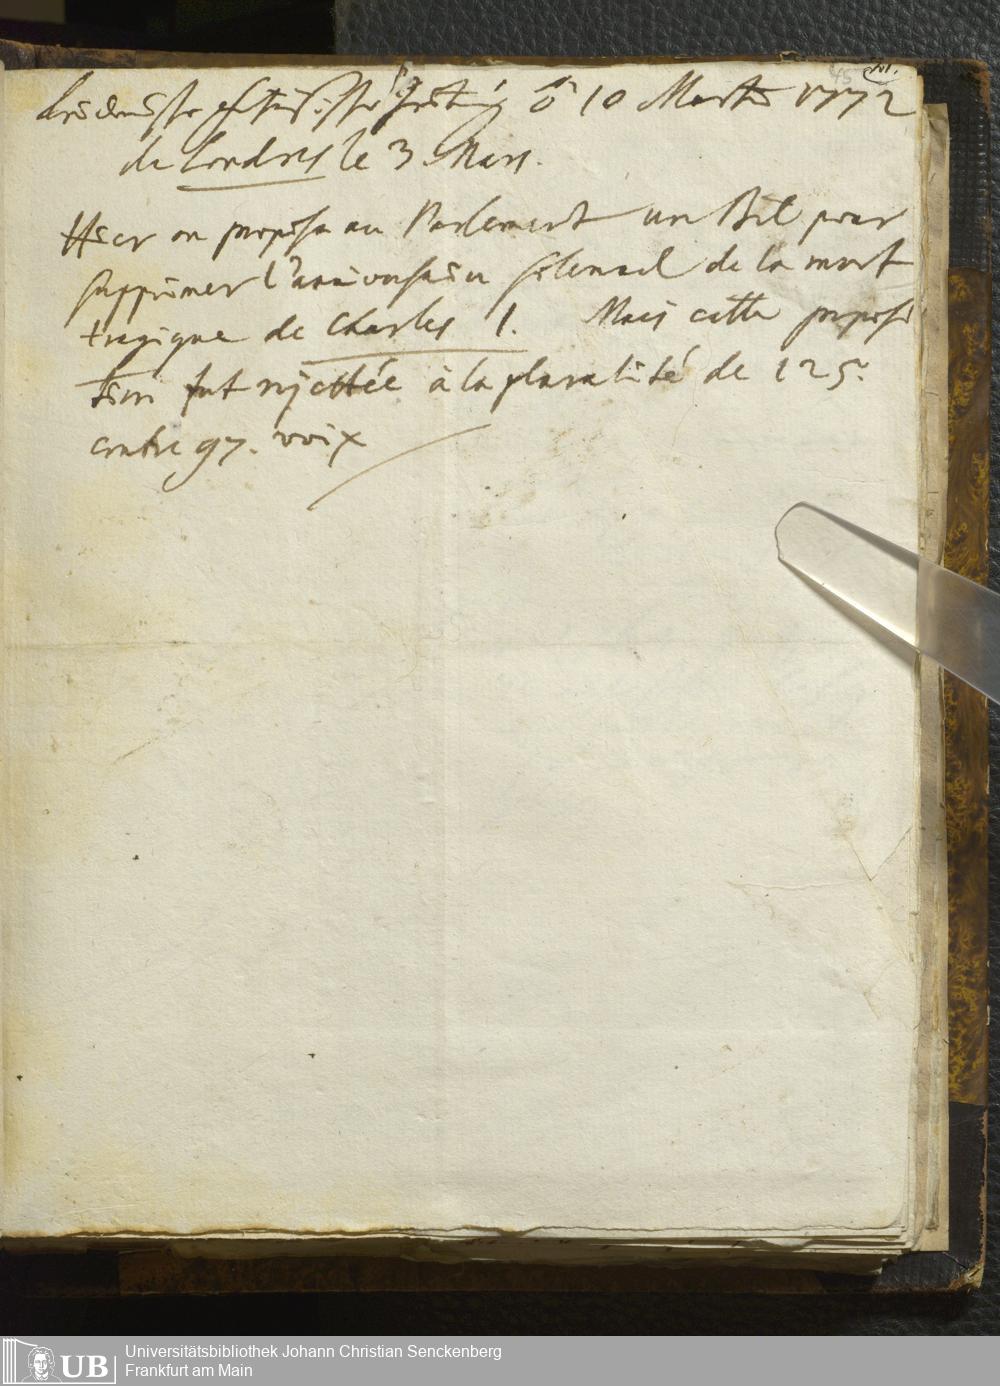 frantzösische Zeitung 10 Martii 1772
de Londres le 3 Mars.
Hier on proposa au Parlement un Bil pour
supprimer l'anniversaire solennel de la mort
tragique de Charles I. Mais cette proposi
tion fut rejettée à la pluralité de 125.
contre 97. voix
UB
Universitätsbibliothek Johann Christian Senckenberg
Frankfurt am Main